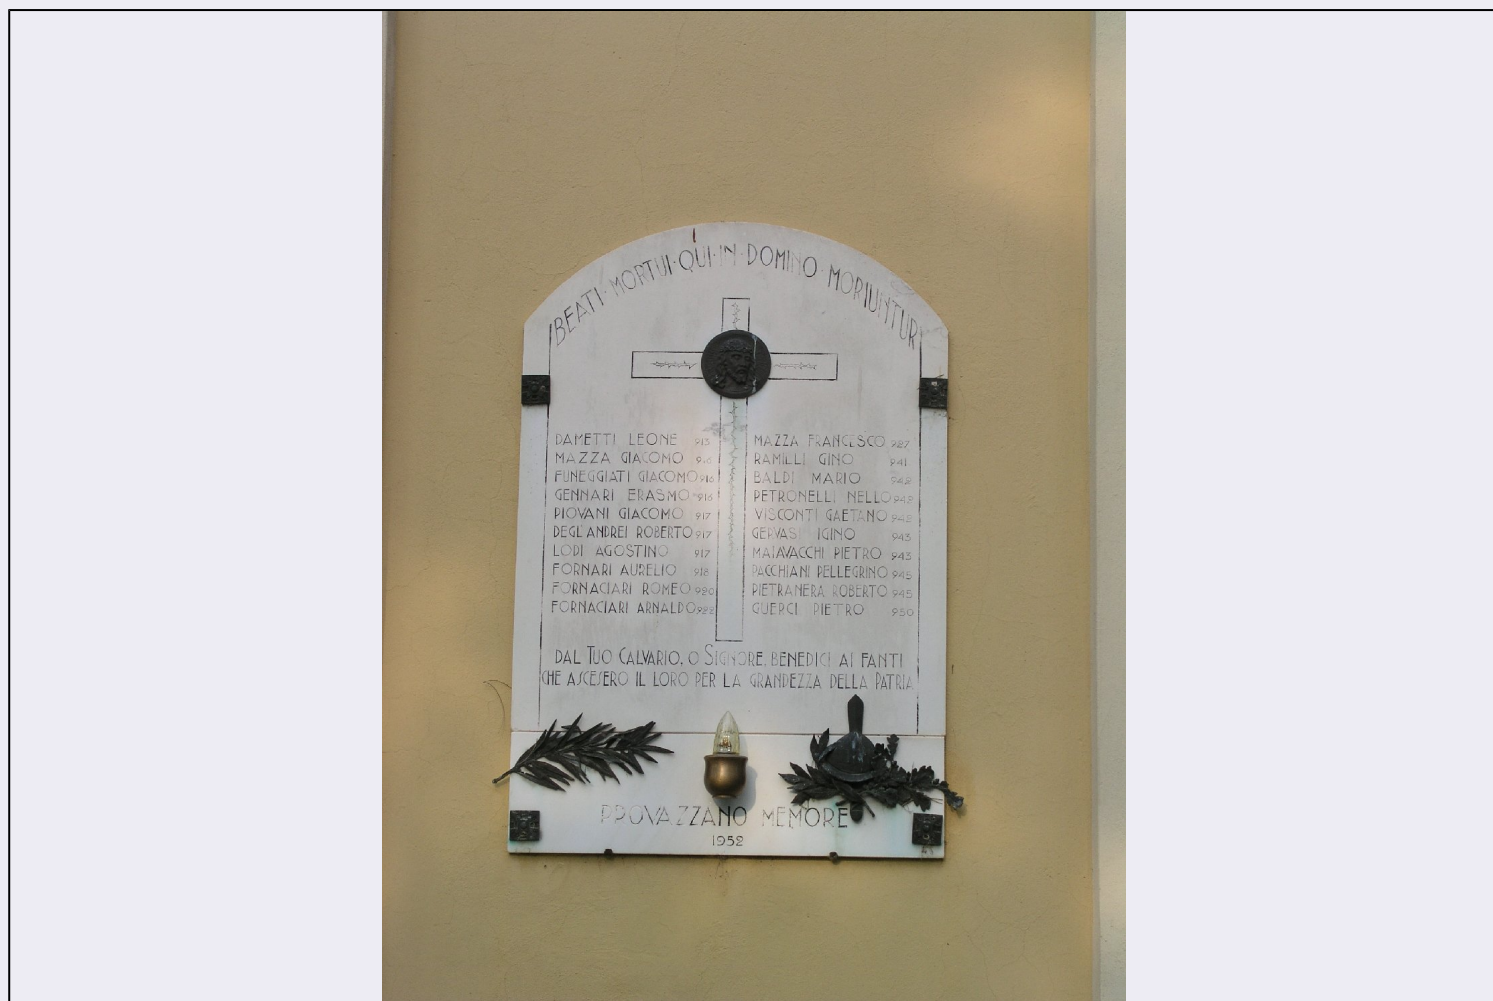 BEATI · MORTUI · QUI · IN · DOMINO · MORIUNTUR
DAMETTI LEONE 915
MAZZA GIACOMO 916
FUNEGGIATI GIACOMO 916
GENNARI ERASMO 916
PIOVANI GIACOMO 917
DEGL'ANDREI ROBERTO 917
LODI AGOSTINO 917
FORNARI AURELIO 918
FORNACIARI ROMEO 920
FORNACIARI ARNALDO 922
MAZZA FRANCESCO 937
RAMILLI GINO 941
BALDI MARIO 942
PETRONELLI NELLO 942
VISCONTI GAETANO 942
GERVASI IGINO 943
MALAVACCHI PIETRO 943
PACCHIANI PELLEGRINO 945
PIETRANERA ROBERTO 945
GUERCI PIETRO 950
DAL TUO CALVARIO, O SIGNORE, BENEDICI AI FANTI
CHE ASCESERO IL LORO PER LA GRANDEZZA DELLA PATRIA
PROVAZZANO MEMORE
1952